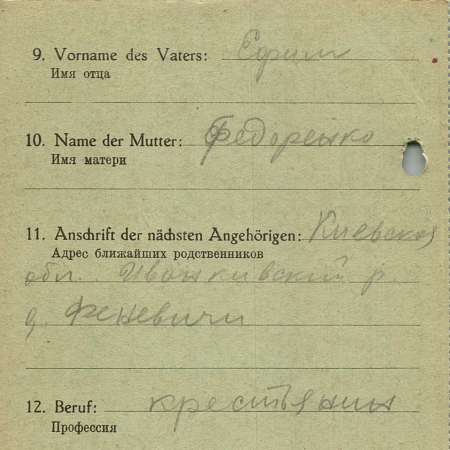 9. Vorname des Vaters: Ефим
Имя отца
10. Name der Mutter: Федоренко
Имя матери
11. Anschrift der nächsten Angehörigen: Киевская
Адрес ближайших родственников
обл. Иванкивский р.
д. Феневичи
12. Beruf: крестьянин
Профессия